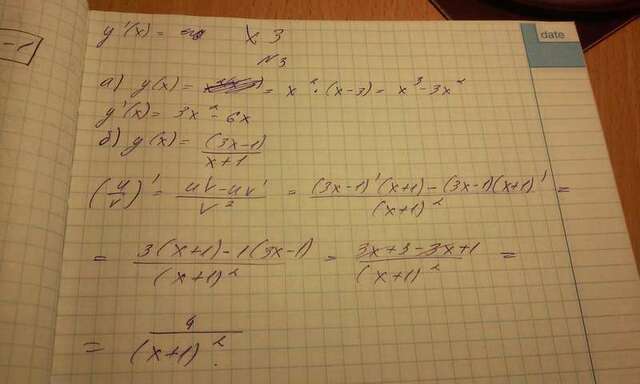 y'(x) = x 3
date
-1
N3
а) y(x) = = x² · (x-3) = x³ - 3x²
y'(x) = 3x² - 6x
б) y(x) = (3x-1) / x+1
(u/v)' = uv - uv' / v² = (3x-1)'(x+1) - (3x-1)(x+1)' / (x+1)² =
= 3(x+1) - 1(3x-1) / (x+1)² = 3x+3-3x+1 / (x+1)² =
= 4 / (x+1)².